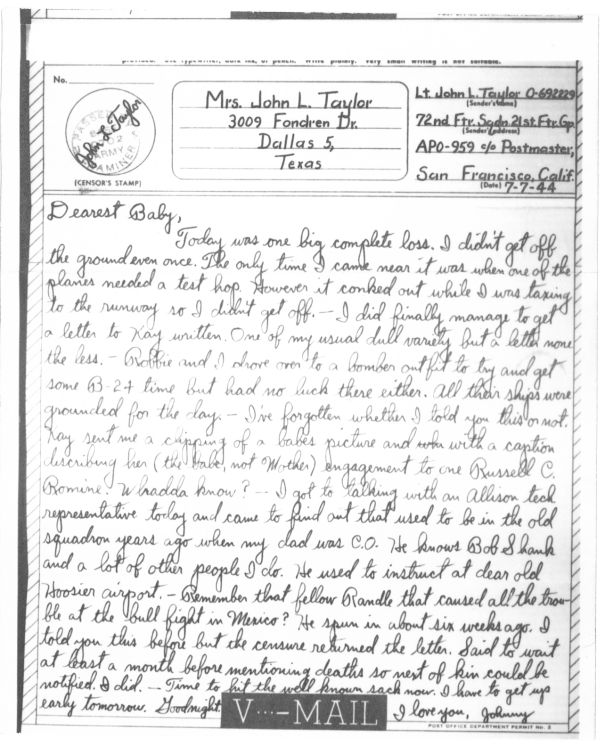 No.
Mrs. John L. Taylor
3009 Fondren Dr.
Dallas 5,
Texas
Lt. John L. Taylor O-692229
(Sender's name)
72nd Ftr. Sqdn. 21st. Ftr. Gp.
(Sender's address)
APO-959 c/o Postmaster,
San Francisco, Calif.
(Date) 7-7-44
PASSED
ARMY EXAMINER
John L Taylor
(CENSOR'S STAMP)
Dearest Baby,
Today was one big complete loss. I didn't get off
the ground even once. The only time I came near it was when one of the
planes needed a test hop. However it conked out while I was taxing
to the runway so I didn't get off. – I did finally manage to get
a letter to Kay written. One of my usual dull variety but a letter none
the less. – Robbie and I drove over to a bomber outfit to try and get
some B-24 time but had no luck there either. All their ships were
grounded for the day. – I've forgotten whether I told you this or not.
Kay sent me a clipping of a babes picture and with a caption
discribing her (the babe, not Mother) engagement to one Russell C.
Romine. Whadda know? – I got to talking with an Allison tech
representative today and came to find out that used to be in the old
squadron years ago when my dad was C.O. He knows Bob Shank
and a lot of other people I do. He used to instruct at dear old
Hoosier airport. – Remember that fellow Randle that caused all the trou-
ble at the bull fight in Mexico? He spun in about six weeks ago. I
told you this before but the censure returned the letter. Said to wait
at least a month before mentioning deaths so next of kin could be
notified. I did. – Time to hit the well known sack now. I have to get up
early tomorrow. Goodnight.
I love you, Johnny
V···–MAIL
POST OFFICE DEPARTMENT PERMIT No. 3